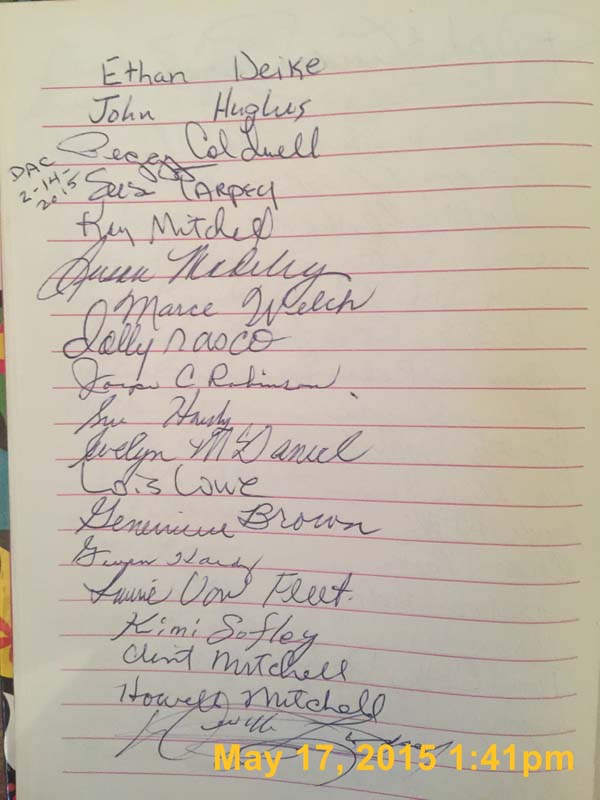 Ethan Deike
John Hughes
Peggy Caldwell
DAC
2-14-
2015
Sue Tarpey
Kay Mitchell
Susan
Marce Welch
Dolly Rasco
C. Robinson
Sue Hardy
Evelyn McDaniel
Lois Lowe
Genevieve Brown
Gwen Hardy
Laurie Van Fleet
Kimi Sofley
Clint Mitchell
Howell Mitchell
May 17, 2015 1:41pm